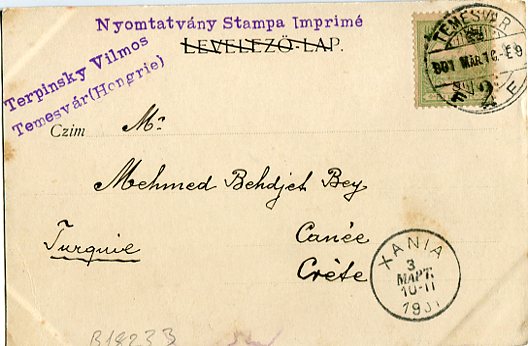 Nyomtatvány Stampa Imprimé
LEVELEZŐ-LAP.
Terpinsky Vilmos
Temesvár (Hongrie)
TEMESVÁR
901 MAR.
2
Czim
Mr
Mehmed Behdjet Bey
Turquie
Canée
Crète
ΧΑΝΙΑ
3
ΜΑΡΤ.
10-11
1901
B18233